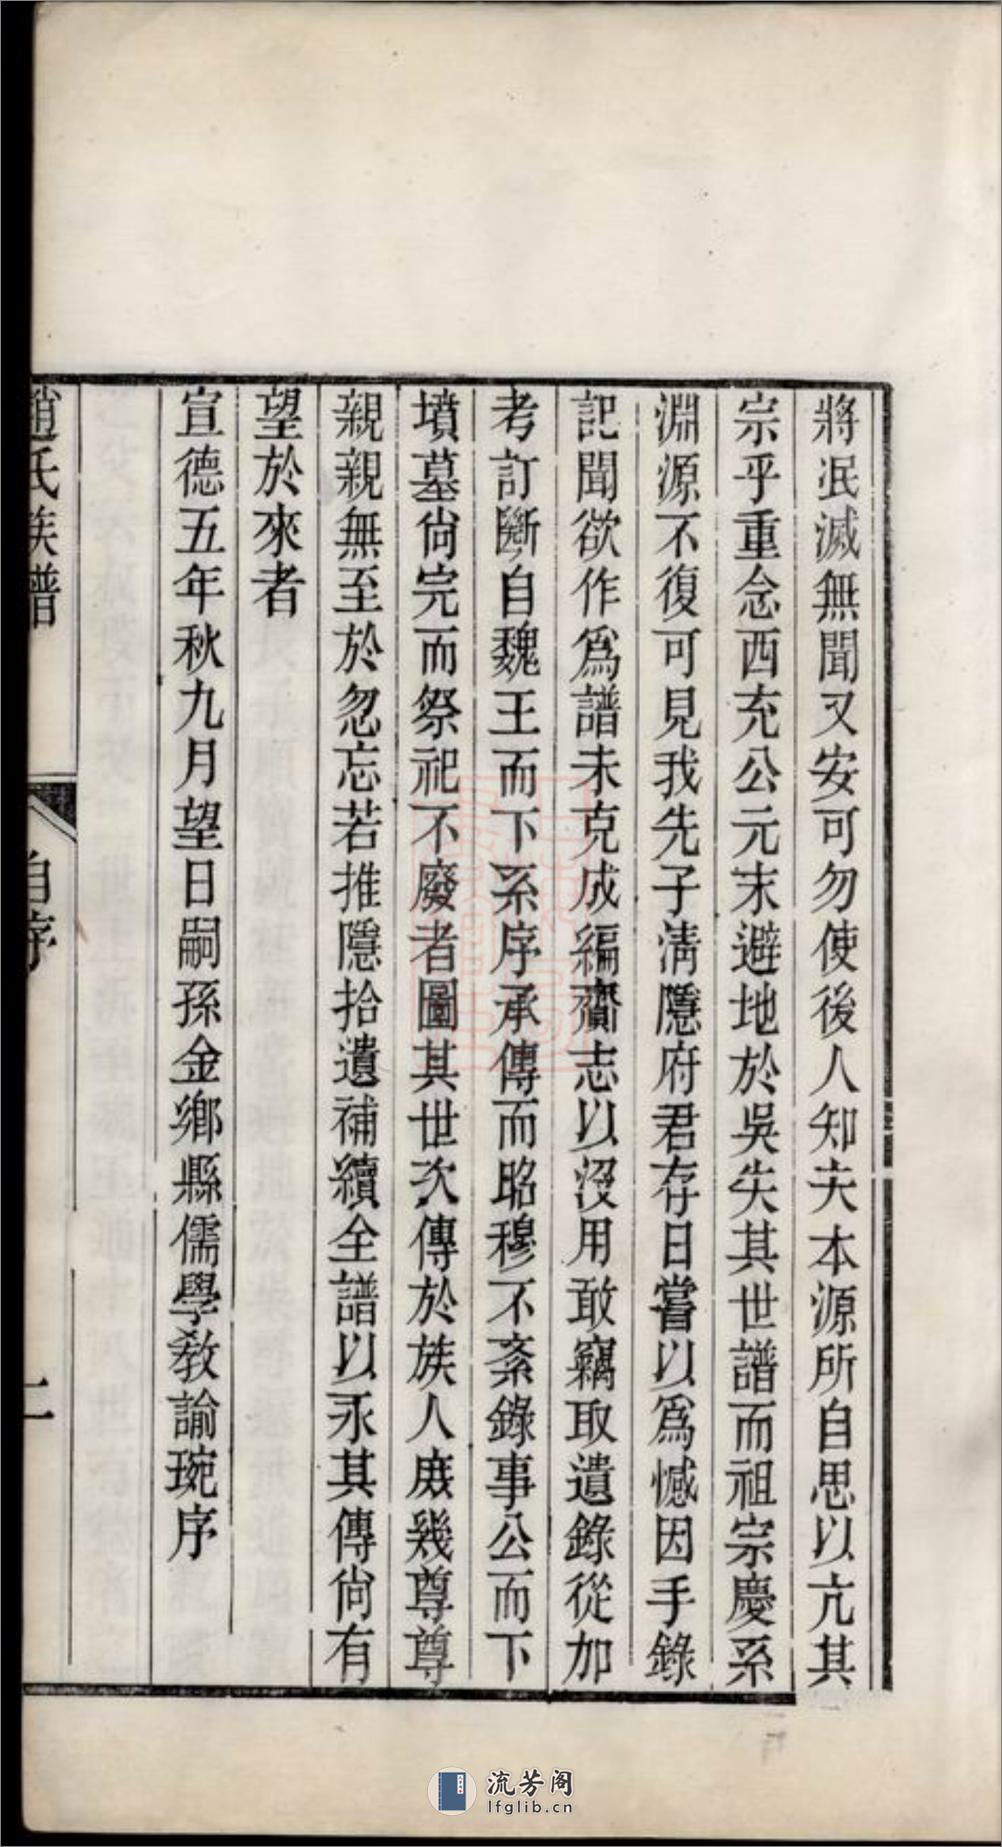 將泯滅無聞又安可勿使後人知夫本源所自思以亢其
宗乎重念西充公元末避地於吳失其世譜而祖宗慶系
淵源不復可見我先子淸隱府君存日嘗以爲憾因手錄
記聞欲作爲譜未克成編齎志以沒用敢竊取遺錄從加
考訂斷自魏王而下系序承傳而昭穆不紊錄事公而下
墳墓尙完而祭祀不廢者圖其世次傳於族人庻幾尊尊
親親無至於忽忘若推隱拾遺補續全譜以永其傳尙有
望於來者
宣德五年秋九月望日嗣孫金鄕縣儒學敎諭琬序
趙氏族譜
自序
二
流芳阁
lfglib.cn